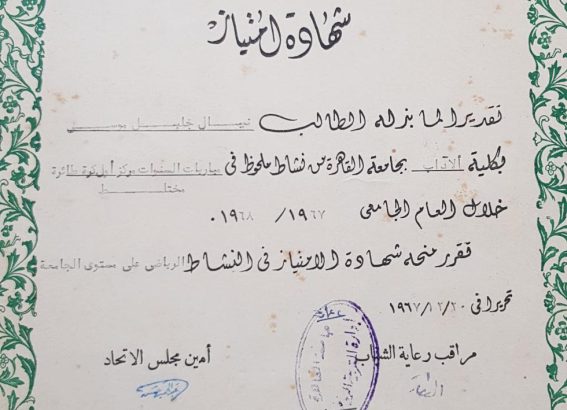 شهادة امتياز
تقديرا لما بذله الطالب نيمال خليل موسى
بكلية الآداب بجامعة القاهرة من نشاط ملحوظ فى مباريات السنوات مركز أول كرة طائرة
مختلط
خلال العام الجامعى ١٩٦٧ / ١٩٦٨ .
فقرر منحه شهادة الامتياز فى النشاط الرياضى على مستوى الجامعة
تحريرا فى ٢٠ / ١٢ / ١٩٦٧
مراقب رعاية الشباب
أمين مجلس الاتحاد